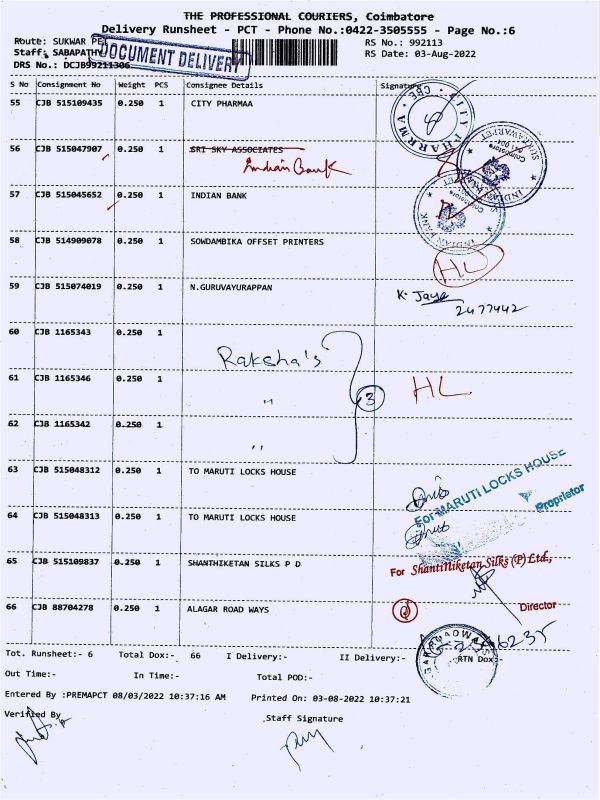 THE PROFESSIONAL COURIERS, Coimbatore
Delivery Runsheet - PCT - Phone No.:0422-3505555 - Page No.:6
Route: SUKWAR PET RS No.: 992113
Staff: SABAPATHY RS Date: 03-Aug-2022
DRS No.: DCJB99211306
DOCUMENT DELIVERY
S No Consignment No Weight PCS Consignee Details Signature
55 CJB 515109435 0.250 1 CITY PHARMAA
CITY PHARMA CBE
56 CJB 515047907 0.250 1 SRI SKY ASSOCIATES
Indian Bank
57 CJB 515045652 0.250 1 INDIAN BANK
INDIAN BANK
58 CJB 514909078 0.250 1 SOWDAMBIKA OFFSET PRINTERS HL
59 CJB 515074019 0.250 1 N.GURUVAYURAPPAN K. Jaya
2477442
60 CJB 1165343 0.250 1 Raksha's
61 CJB 1165346 0.250 1 " 3 HL
62 CJB 1165342 0.250 1 "
63 CJB 515048312 0.250 1 TO MARUTI LOCKS HOUSE
For MARUTI LOCKS HOUSE
Proprietor
64 CJB 515048313 0.250 1 TO MARUTI LOCKS HOUSE
65 CJB 515109837 0.250 1 SHANTHIKETAN SILKS P D
For Shanthiketan Silks (P) Ltd.,
Director
66 CJB 88704278 0.250 1 ALAGAR ROAD WAYS
Tot. Runsheet:- 6 Total Dox:- 66 I Delivery:- II Delivery:- RTN Dox:-
Out Time:- In Time:- Total POD:-
Entered By :PREMAPCT 08/03/2022 10:37:16 AM Printed On: 03-08-2022 10:37:21
Verified By Staff Signature